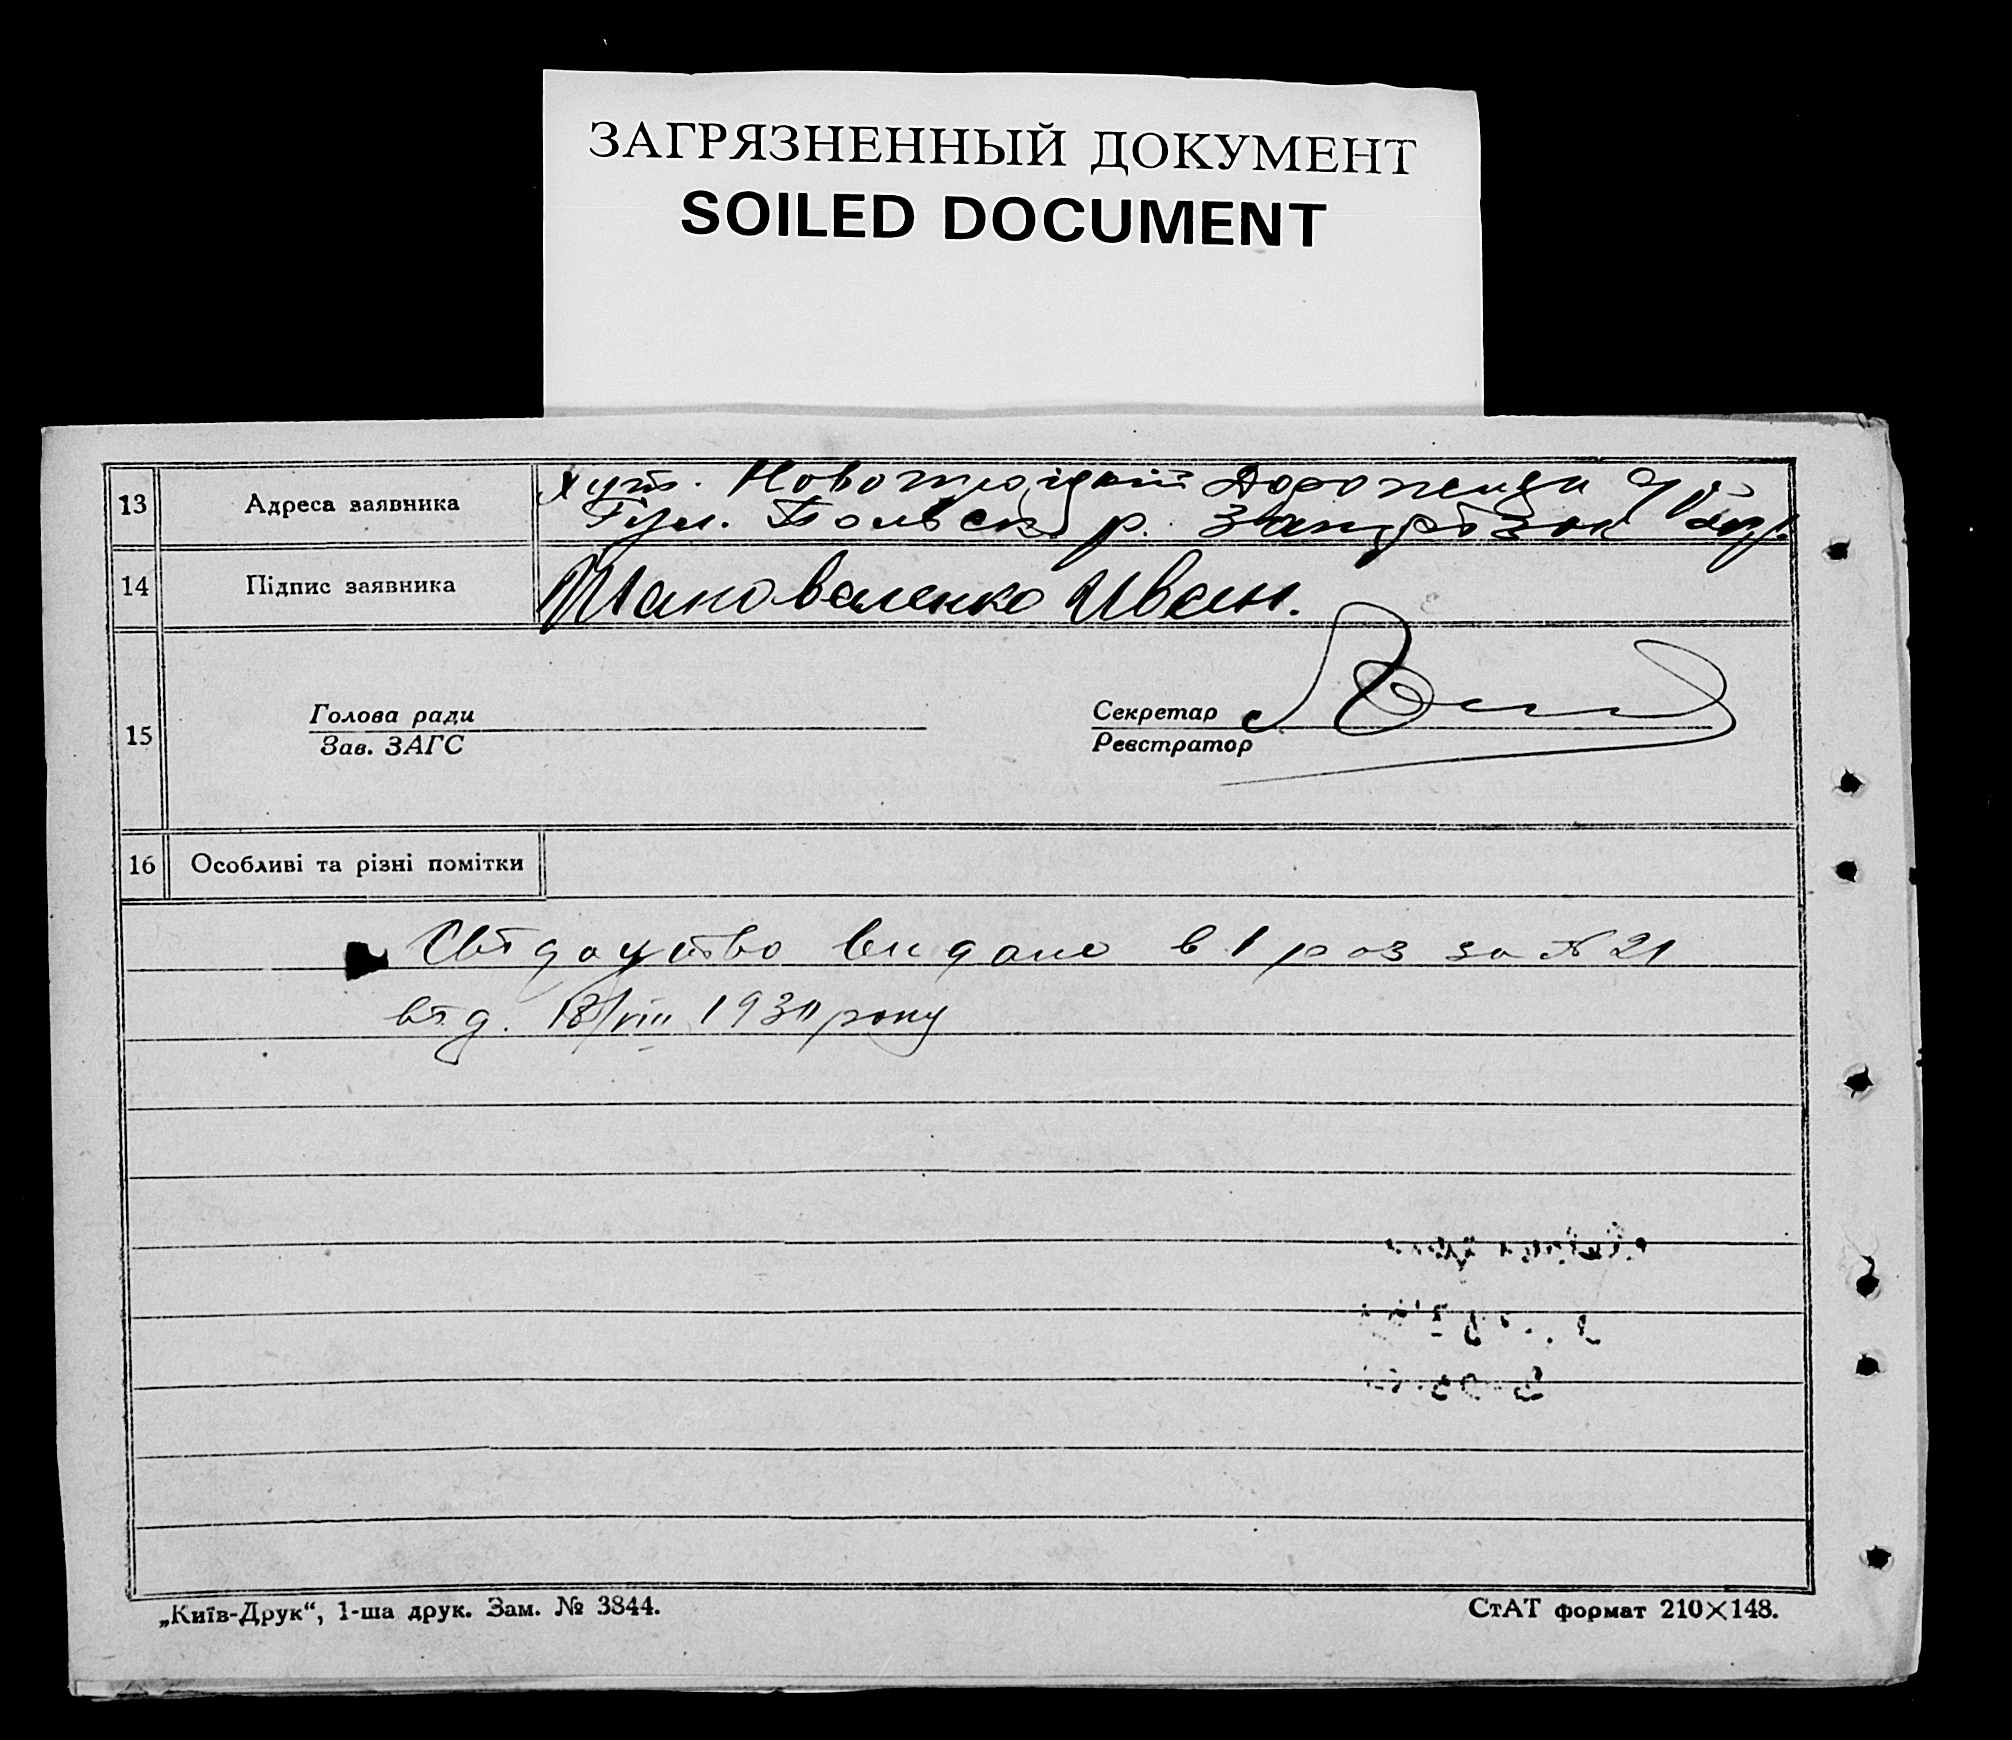 ЗАГРЯЗНЕННЫЙ ДОКУМЕНТ
SOILED DOCUMENT
13 Адреса заявника Хут. Новотроїцкий
Гул. Польск. р.
14 Підпис заявника Шаповаленко Иван.
15 Голова ради Секретар
Зав. ЗАГС Реєстратор
16 Особливі та різні помітки
Свідоцтво видано в 1 раз за № 21
від. 18/VIII 1930 року
„Київ-Друк“, 1-ша друк. Зам. № 3844. СтАТ формат 210×148.